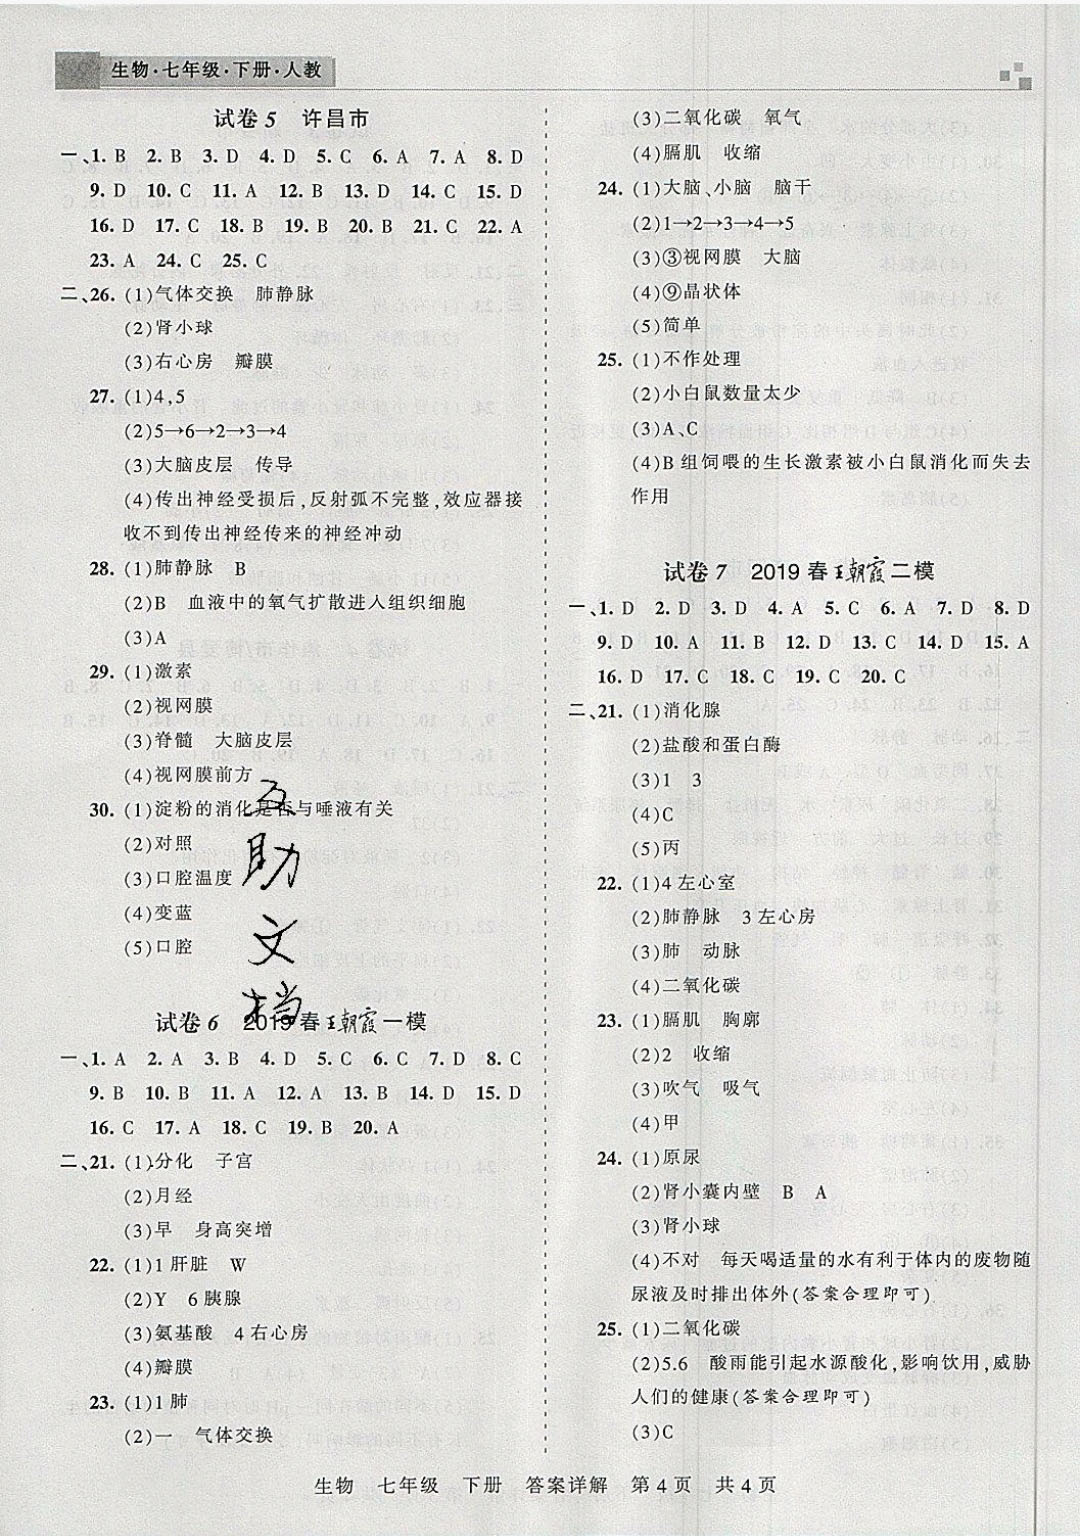 生物·七年级·下册·人教
试卷5 许昌市
一、1. B 2. B 3. D 4. D 5. C 6. A 7. A 8. D
9. D 10. C 11. A 12. B 13. D 14. C 15. D
16. D 17. C 18. B 19. B 20. B 21. C 22. A
23. A 24. C 25. C
二、26. (1)气体交换 肺静脉
(2)肾小球
(3)右心房 瓣膜
27. (1)4,5
(2)5→6→2→3→4
(3)大脑皮层 传导
(4)传出神经受损后,反射弧不完整,效应器接
收不到传出神经传来的神经冲动
28. (1)肺静脉 B
(2)B 血液中的氧气扩散进人组织细胞
(3)A
29. (1)激素
(2)视网膜
(3)脊髓 大脑皮层
(4)视网膜前方
30. (1)淀粉的消化是否与唾液有关
(2)对照
(3)口腔温度
(4)变蓝
(5)口腔
互助文档
试卷6 2019春王朝霞一模
一、1. A 2. A 3. B 4. D 5. C 6. C 7. D 8. C
9. B 10. B 11. A 12. A 13. B 14. D 15. D
16. C 17. A 18. C 19. B 20. A
二、21. (1)分化 子宫
(2)月经
(3)早 身高突增
22. (1)1肝脏 W
(2)Y 6胰腺
(3)氨基酸 4右心房
(4)瓣膜
23. (1)1肺
(2)一 气体交换
(3)二氧化碳 氧气
(4)膈肌 收缩
24. (1)大脑、小脑 脑干
(2)1→2→3→4→5
(3)③视网膜 大脑
(4)⑨晶状体
(5)简单
25. (1)不作处理
(2)小白鼠数量太少
(3)A、C
(4)B组饲喂的生长激素被小白鼠消化而失去
作用
试卷7 2019春王朝霞二模
一、1. D 2. D 3. D 4. A 5. C 6. A 7. D 8. D
9. D 10. A 11. B 12. D 13. C 14. D 15. A
16. D 17. C 18. C 19. C 20. C
二、21. (1)消化腺
(2)盐酸和蛋白酶
(3)1 3
(4)C
(5)丙
22. (1)4左心室
(2)肺静脉 3左心房
(3)肺 动脉
(4)二氧化碳
23. (1)膈肌 胸廓
(2)2 收缩
(3)吹气 吸气
(4)甲
24. (1)原尿
(2)肾小囊内壁 B A
(3)肾小球
(4)不对 每天喝适量的水有利于体内的废物随
尿液及时排出体外(答案合理即可)
25. (1)二氧化碳
(2)5.6 酸雨能引起水源酸化,影响饮用,威胁
人们的健康(答案合理即可)
(3)C
生物 七年级 下册 答案详解 第4页 共4页